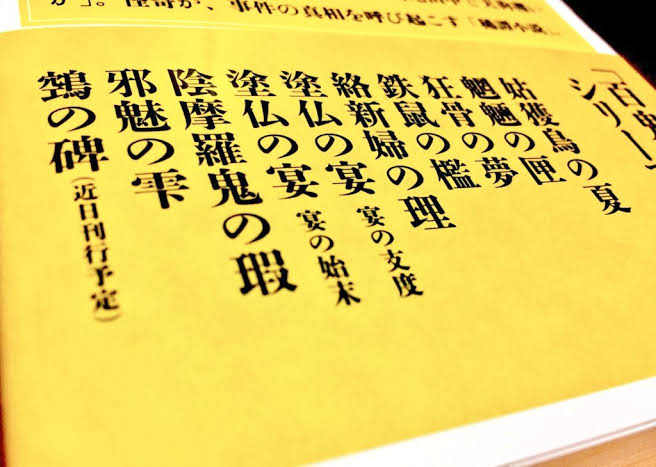 怪奇が、事件の真相を呼び起こす「
「百鬼」
シリー
姑獲鳥の夏
魍魎の匣
狂骨の夢
鉄鼠の檻
絡新婦の理
塗仏の宴 宴の支度
塗仏の宴 宴の始末
陰摩羅鬼の瑕
邪魅の雫
鵼の碑(近日刊行予定)